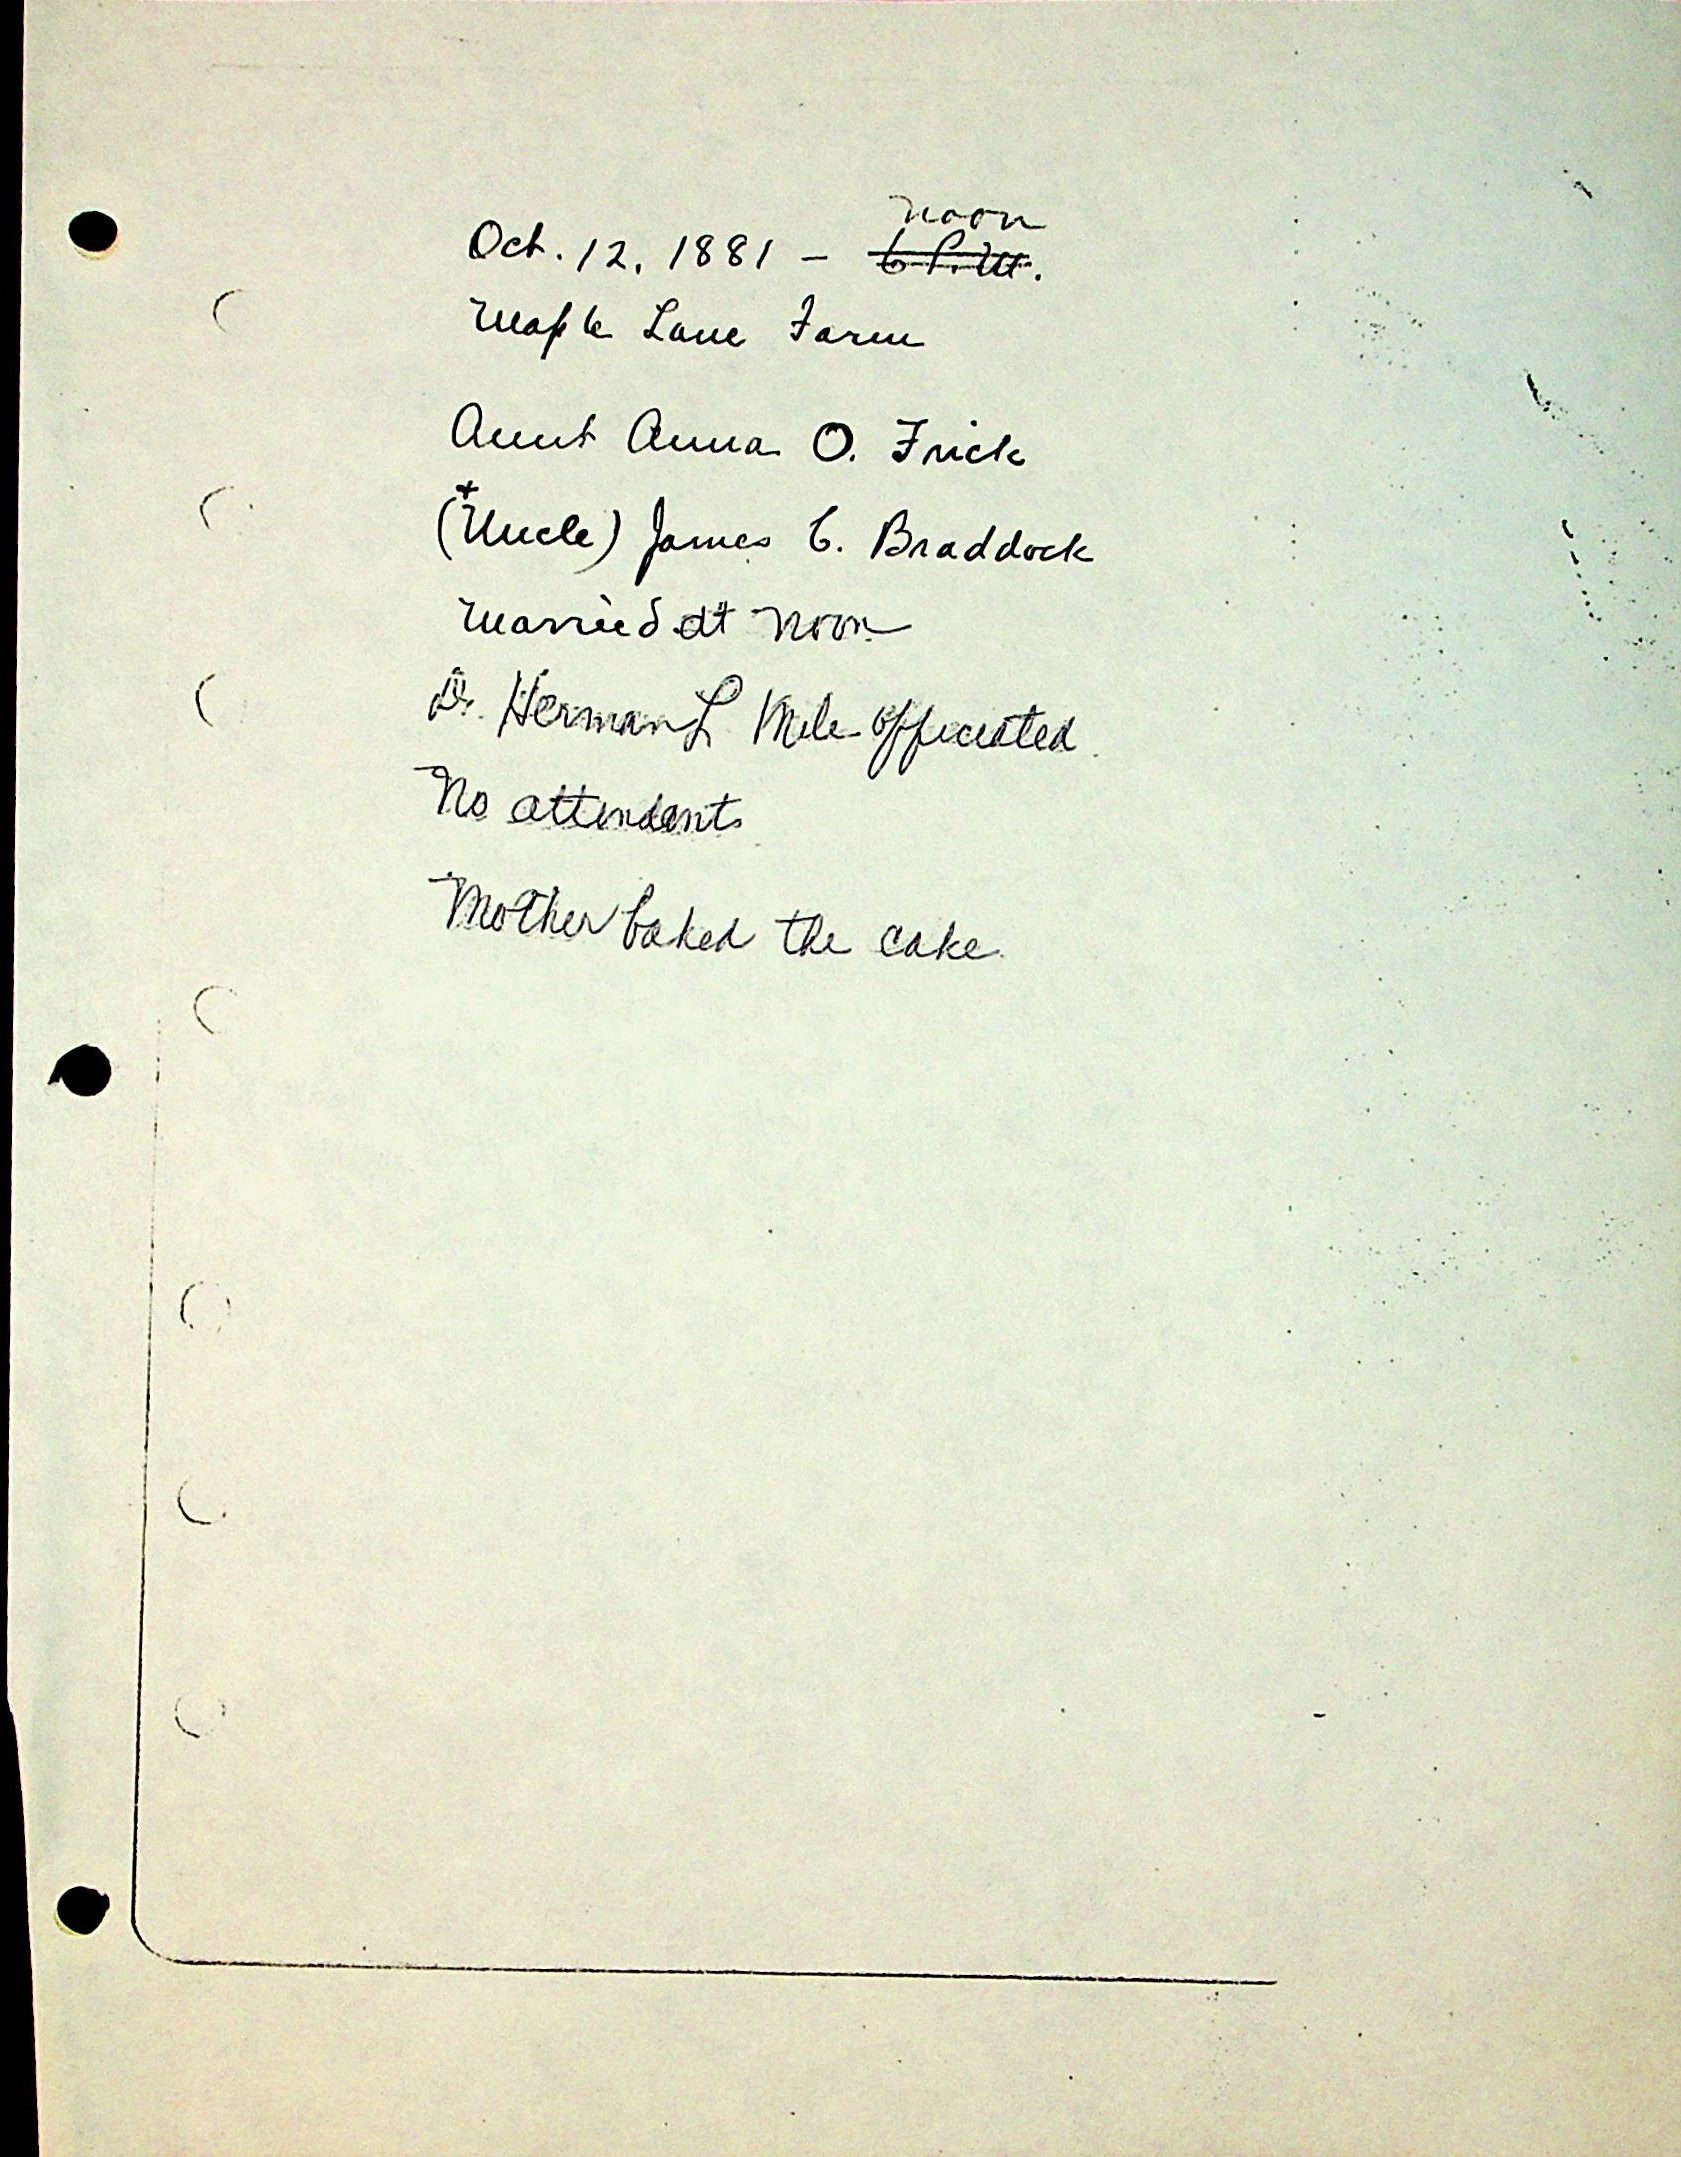 Oct. 12, 1881 - noon
6 P.M.
Maple Lane Farm
Aunt Anna O. Frick
(+ Uncle) James C. Braddock
Married at noon
Dr. Herman L officiated
No attendants
Mother baked the cake